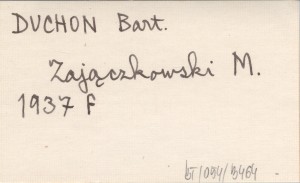 DUCHON Bart.
Zajączkowski M.
1937 F
bT/094/3464